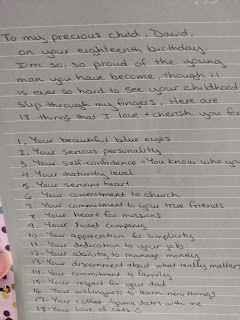 To my precious child, David,
on your eighteenth birthday.
I'm so, so proud of the young
man you have become, though it
is ever so hard to see your childhood
slip through my fingers. Here are
18 things that I love + cherish you for
1. Your beautiful blue eyes
2. Your serious personality
3. Your self-confidence - You know who you
4. Your maturity level
5. Your servant heart
6. Your commitment to church
7. Your commitment to your true friends
8. Your heart for missions
9. Your sweet company
10. Your appreciation for simplicity
11. Your dedication to your job
12. Your ability to manage money
13. Your discernment about what really matters
14. Your commitment to family
15. Your respect for your dad
16. Your willingness to learn new things
17. Your coffee/game dates with me
18. Your love of cats